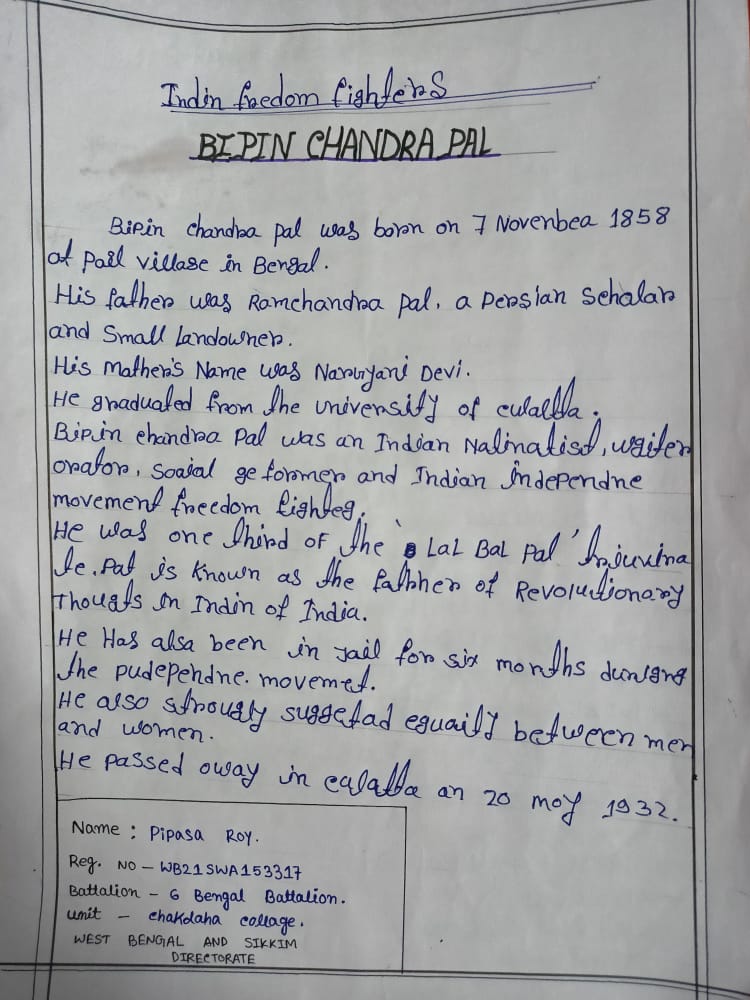 Indin freedom fighters
BIPIN CHANDRA PAL
Bipin chandra pal was born on 7 Novenbea 1858
at pail village in Bengal.
His father was Ramchandra pal, a persian Schalar
and Small Landowner.
His Mather's Name was Narayani Devi.
He graduated from the university of culactta.
Bipin chandra Pal was an Indian Nalinatist, waiter
orator, Soaial geformer and Indian independne
movement freedom fighteg.
He was one third of the ‘Lal Bal Pal’
Pal is known as the fathher of Revolutionary
Thougts in Indin of India.
He Has alsa been in Jail for six months duniang
the pudependne. movemet.
He also strougly suggetad eguaity between men
and women.
He passed oway in calatta an 20 moy 1932.
Name : Pipasa Roy.
Reg. NO - WB21SWA153317
Battalion - 6 Bengal Battalion.
unit - chakdaha collage.
WEST BENGAL AND SIKKIM
DIRECTORATE